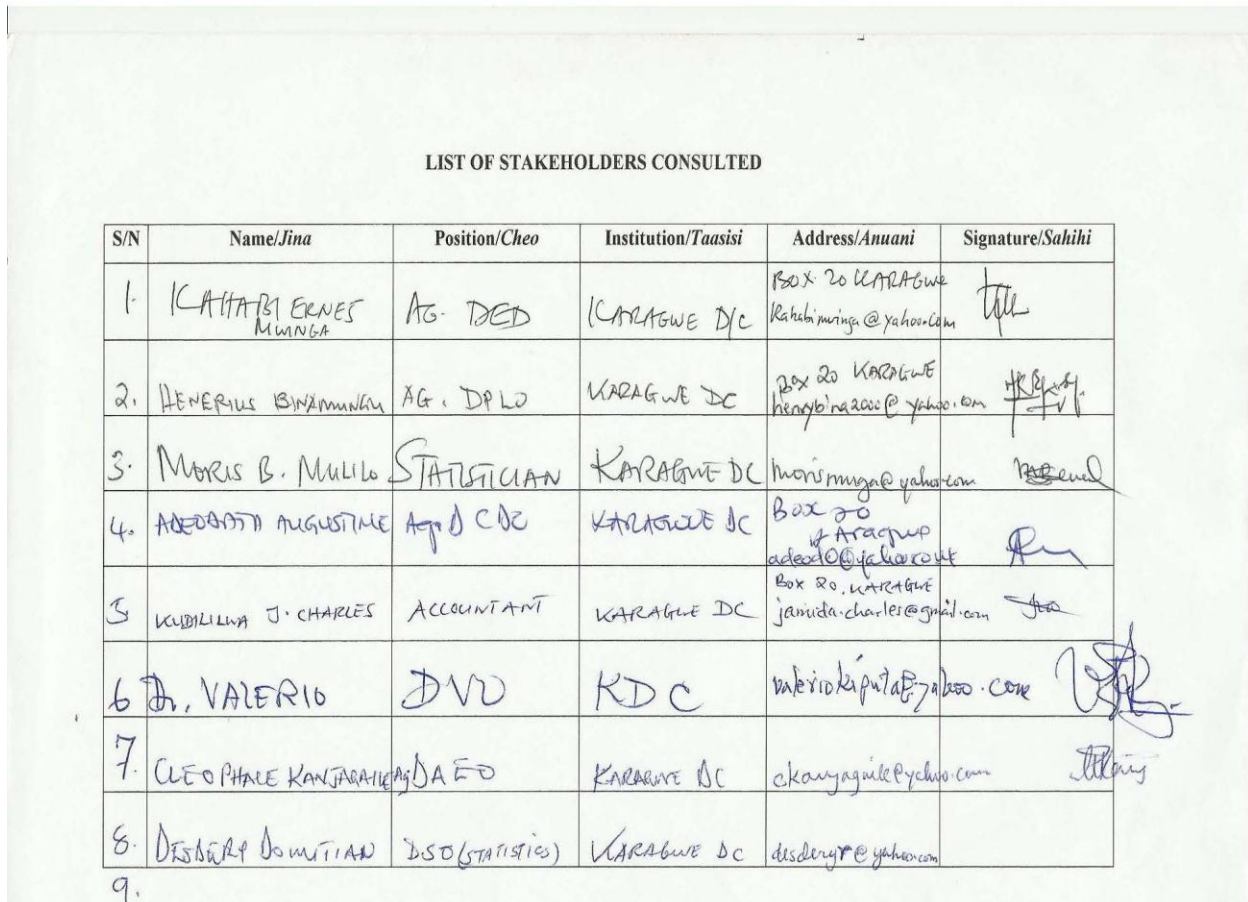 LIST OF STAKEHOLDERS CONSULTED
S/N Name/Jina Position/Cheo Institution/Taasisi Address/Anuani Signature/Sahihi
1. KAHABI ERNES MWINGA AG. DED KARAGWE D/C BOX 20 KARAGWE Kahabimwinga@yahoo.com
2. HENERIUS BINAMUNGU AG. DPLO KARAGWE DC BOX 20 KARAGWE henrybina2000@yahoo.com
3. MORIS B. MULILO STATISTICIAN KARAGWE DC morismuga@yahoo.com
4. AUGUSTINE KARAGWE DC Box 20
5 J. CHARLES ACCOUNTANT KARAGWE DC Box 20, KARAGWE jamida.charles@gmail.com
6 Dr. VALERIO DVO KDC valeriokiputa@yahoo.com
7. CLEOPHACE Ag DAEO KARAGWE DC
8. DESDERY DOMITIAN DSO (STATISTICS) KARAGWE DC desderyr@yahoo.com
9.